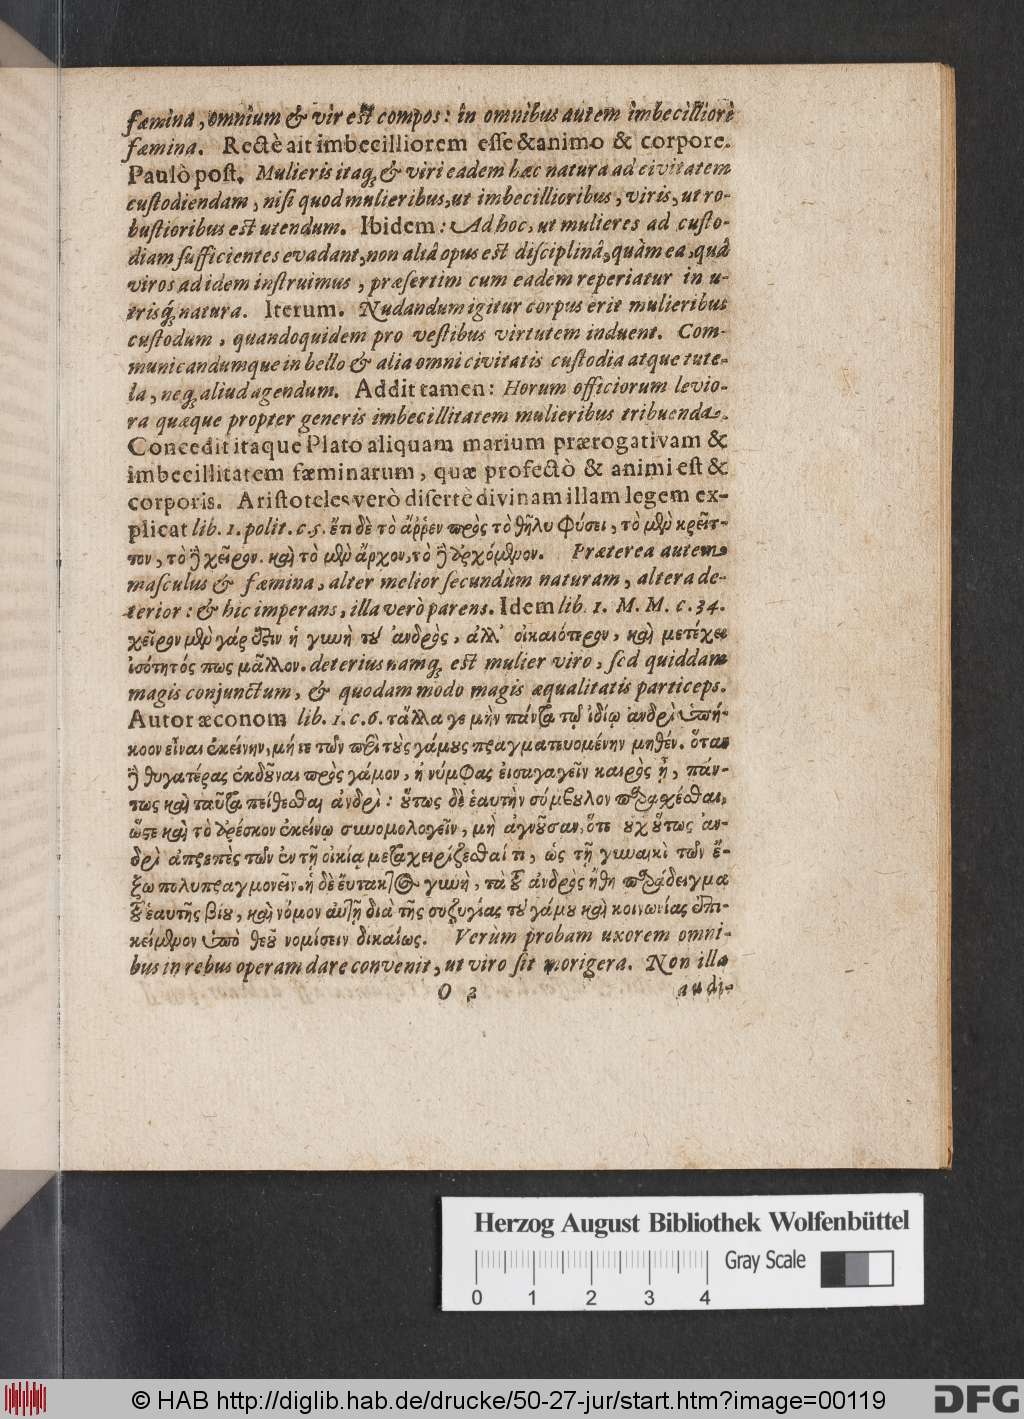 fæmina, omnium & vir est compos: in omnibus autem imbecilliore
fæmina. Rectè ait imbecilliorem esse & animo & corpore.
Paulò post. Mulieris itaq; & viri eadem hæc natura ad civitatem
custodiendam, nisi quod mulieribus, ut imbecillioribus, viris, ut ro-
bustioribus est utendum. Ibidem: Ad hoc, ut mulieres ad custo-
diam sufficientes evadant, non aliâ opus est disciplinâ, quàm ea, quâ
viros ad idem instruimus, præsertim cum eadem reperiatur in u-
trisq; natura. Iterum. Nudandum igitur corpus erit mulieribus
custodum, quandoquidem pro vestibus virtutem induent. Com-
municandumque in bello & alia omni civitatis custodia atque tute-
la, neq; aliud agendum. Addit tamen: Horum officiorum levio-
ra quæque propter generis imbecillitatem mulieribus tribuenda.
Concedit itaque Plato aliquam marium prærogativam &
imbecillitatem fæminarum, quæ profectò & animi est &
corporis. Aristoteles verò disertè divinam illam legem ex-
plicat lib. 1. polit. c. 5. ἔτι δὲ τὸ ἄῤῥεν πρὸς τὸ θῆλυ φύσει, τὸ μὲν κρεῖτ-
τον, τὸ δὲ χεῖρον. καὶ τὸ μὲν ἄρχον, τὸ δὲ ἀρχόμενον. Præterea autem
masculus & fæmina, alter melior secundùm naturam, altera de-
terior: & hic imperans, illa verò parens. Idem lib. 1. M. M. c. 34.
χεῖρον μὲν γάρ ἐστιν ἡ γυνὴ τοῦ ἀνδρὸς, ἀλλ' οἰκαιότερον, καὶ μετέχει
ἰσότητός πως μᾶλλον. deterius namq; est mulier viro, sed quiddam
magis conjunctum, & quodam modo magis æqualitatis particeps.
Autor æconom lib. 1. c. 6. τἄλλα γε μὴν πάντα τῷ ἰδίῳ ἀνδρὶ ὑπή-
κοον εἶναι ἐκείνην, μήτε τῶν περὶ τοὺς γάμους πραγματευομένην μηθέν. ὅταν
δὲ θυγατέρας ἐκδοῦναι πρὸς γάμον, ἢ νύμφας εἰσαγαγεῖν καιρὸς ᾖ, πάν-
τως καὶ ταῦτα πείθεσθαι ἀνδρὶ: οὕτως δὲ ἑαυτὴν σύμβουλον παρασχέσθαι,
ὥστε καὶ τὸ ἀρέσκον ἐκείνῳ συνομολογεῖν, μὴ ἀγνοῦσαν, ὅτι οὐχ οὕτως ἀν-
δρὶ ἀπρεπὲς τῶν ἐν τῇ οἰκίᾳ μεταχειρίζεσθαί τι, ὡς τῇ γυναικὶ τῶν ἔ-
ξω πολυπραγμονεῖν. ἡ δὲ εὔτακτος γυνὴ, τὰ τοῦ ἀνδρὸς ἤθη παράδειγμα
τοῦ ἑαυτῆς βίου, καὶ νόμον αὐτῇ διὰ τῆς συζυγίας τοῦ γάμου καὶ κοινωνίας ἐπι-
κείμενον ὑπὸ θεοῦ νομίσειν δικαίως. Verùm probam uxorem omni-
bus in rebus operam dare convenit, ut viro sit morigera. Non illa
O 2 audi-
Herzog August Bibliothek Wolfenbüttel
Gray Scale
0 1 2 3 4
© HAB http://diglib.hab.de/drucke/50-27-jur/start.htm?image=00119 DFG